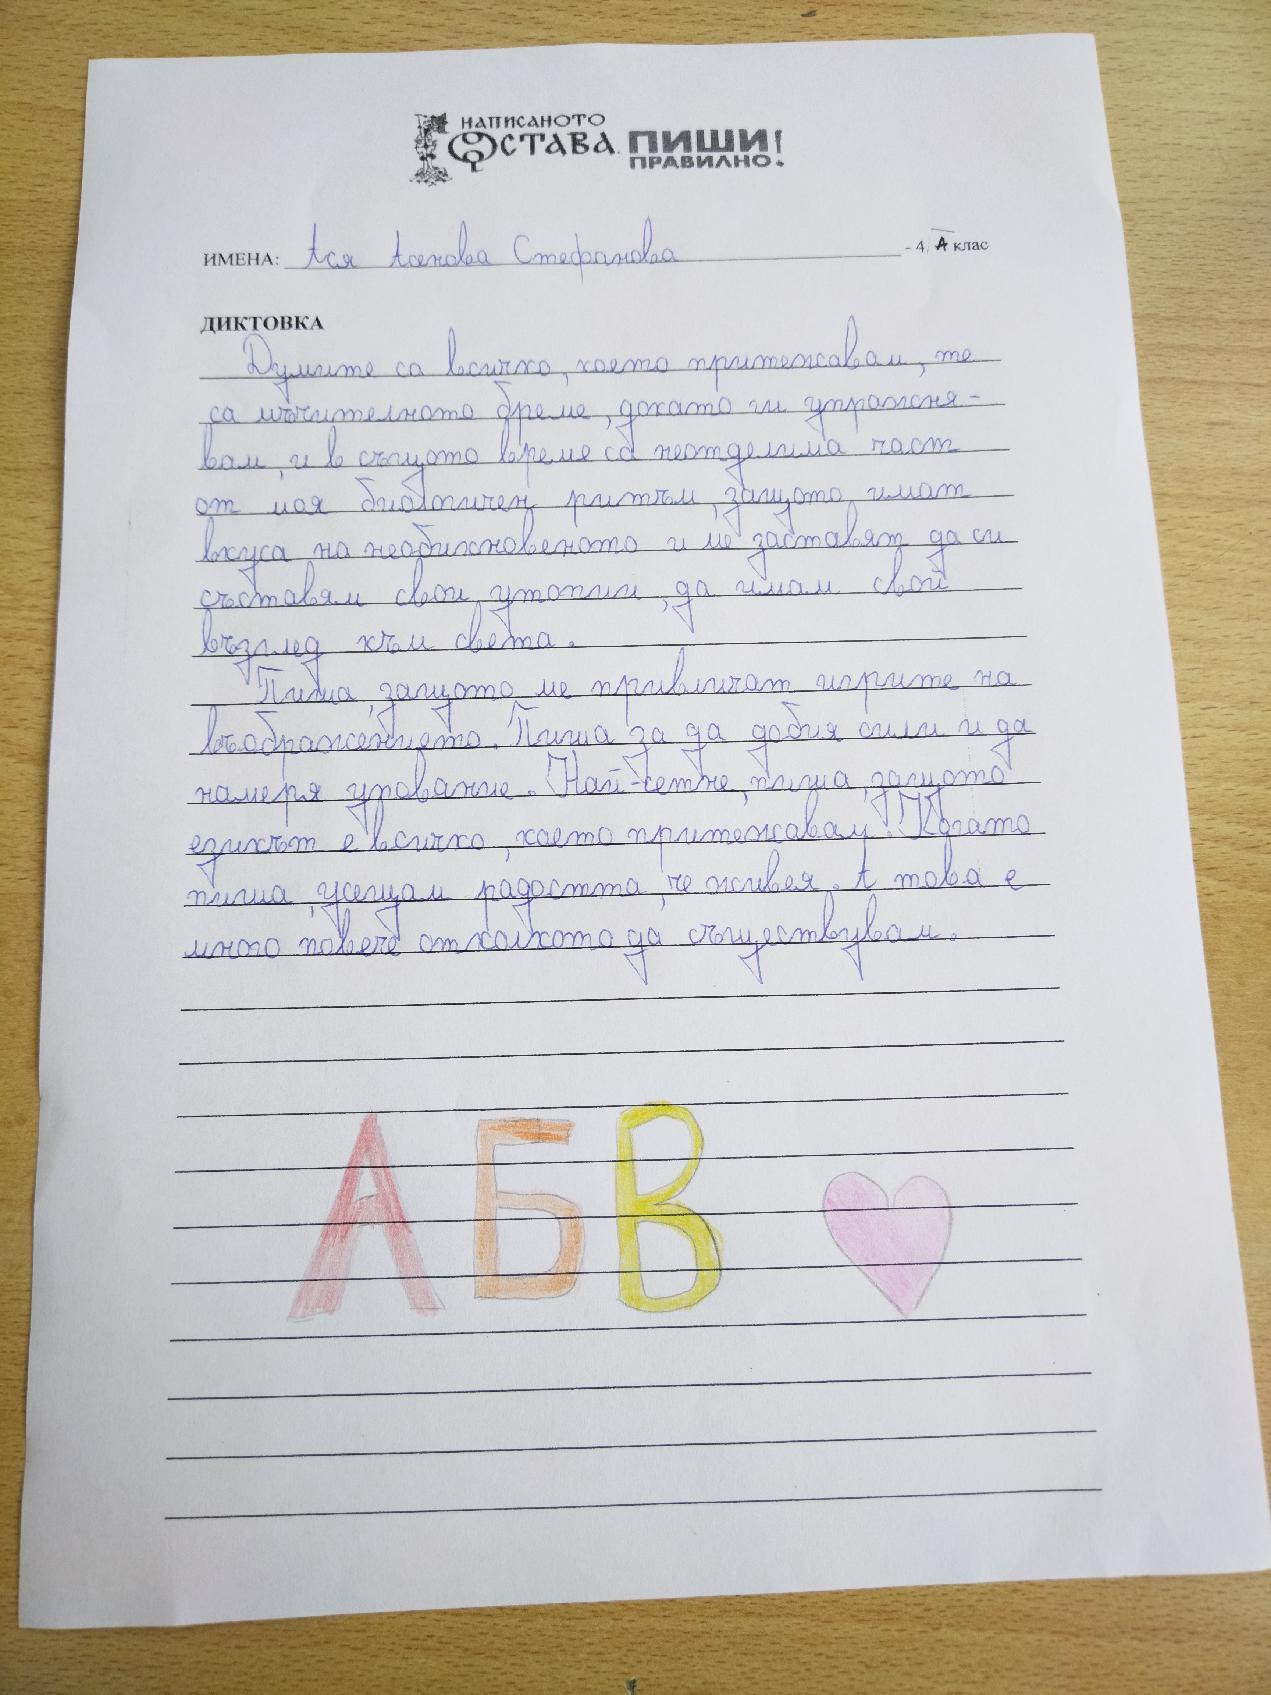 НАПИСАНОТО
ОСТАВА. ПИШИ
ПРАВИЛНО!
ИМЕНА: Ася Асенова Стефанова - 4 А клас
ДИКТОВКА
Думите са всичко, което притежавам, те
са мъчителното бреме, докато ги упражня-
вам, и в същото време са неотделима част
от моя биологичен ритъм, защото имат
вкуса на необикновеното и ме заставят да си
съставям свои утопии, да имам свой
възглед към света.
Пиша, защото ме привличат игрите на
въображението. Пиша за да добия сили и да
намеря упование. Най-сетне, пиша, защото
езикът е всичко, което притежавам. Когато
пиша, усещам радостта, че живея. А това е
много повече отколкото да съществувам.
А Б В